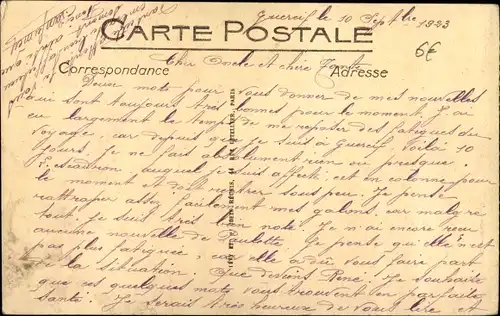 Guercif le 10 Septbre 1923
6€
CARTE POSTALE
Cher Oncle et chère Tante
Correspondance
Adresse
Deux mots pour vous donner de mes nouvelles
qui sont toujours très bonnes pour le moment. J'ai
eu largement le temps de me reposer des fatigues du
voyage, car depuis que je suis à Guercif, voilà 10
jours. Je ne fais absolument rien ou presque.
L'escadron auquel je suis affecté est en colonne pour
le moment et doit rentrer sous peu. Je pense
rattraper assez facilement mes galons, car malgré
tout, je suis très bien noté. Je n'ai encore reçu
aucune nouvelle de Paulette. Je pense qu'elle n'est
pas plus fatiguée, car elle a dû vous faire part
de la situation. Que deviens René. Je souhaite
que ces quelques mots vous trouvent en parfaite
santé. Je serais très heureux de vous lire et